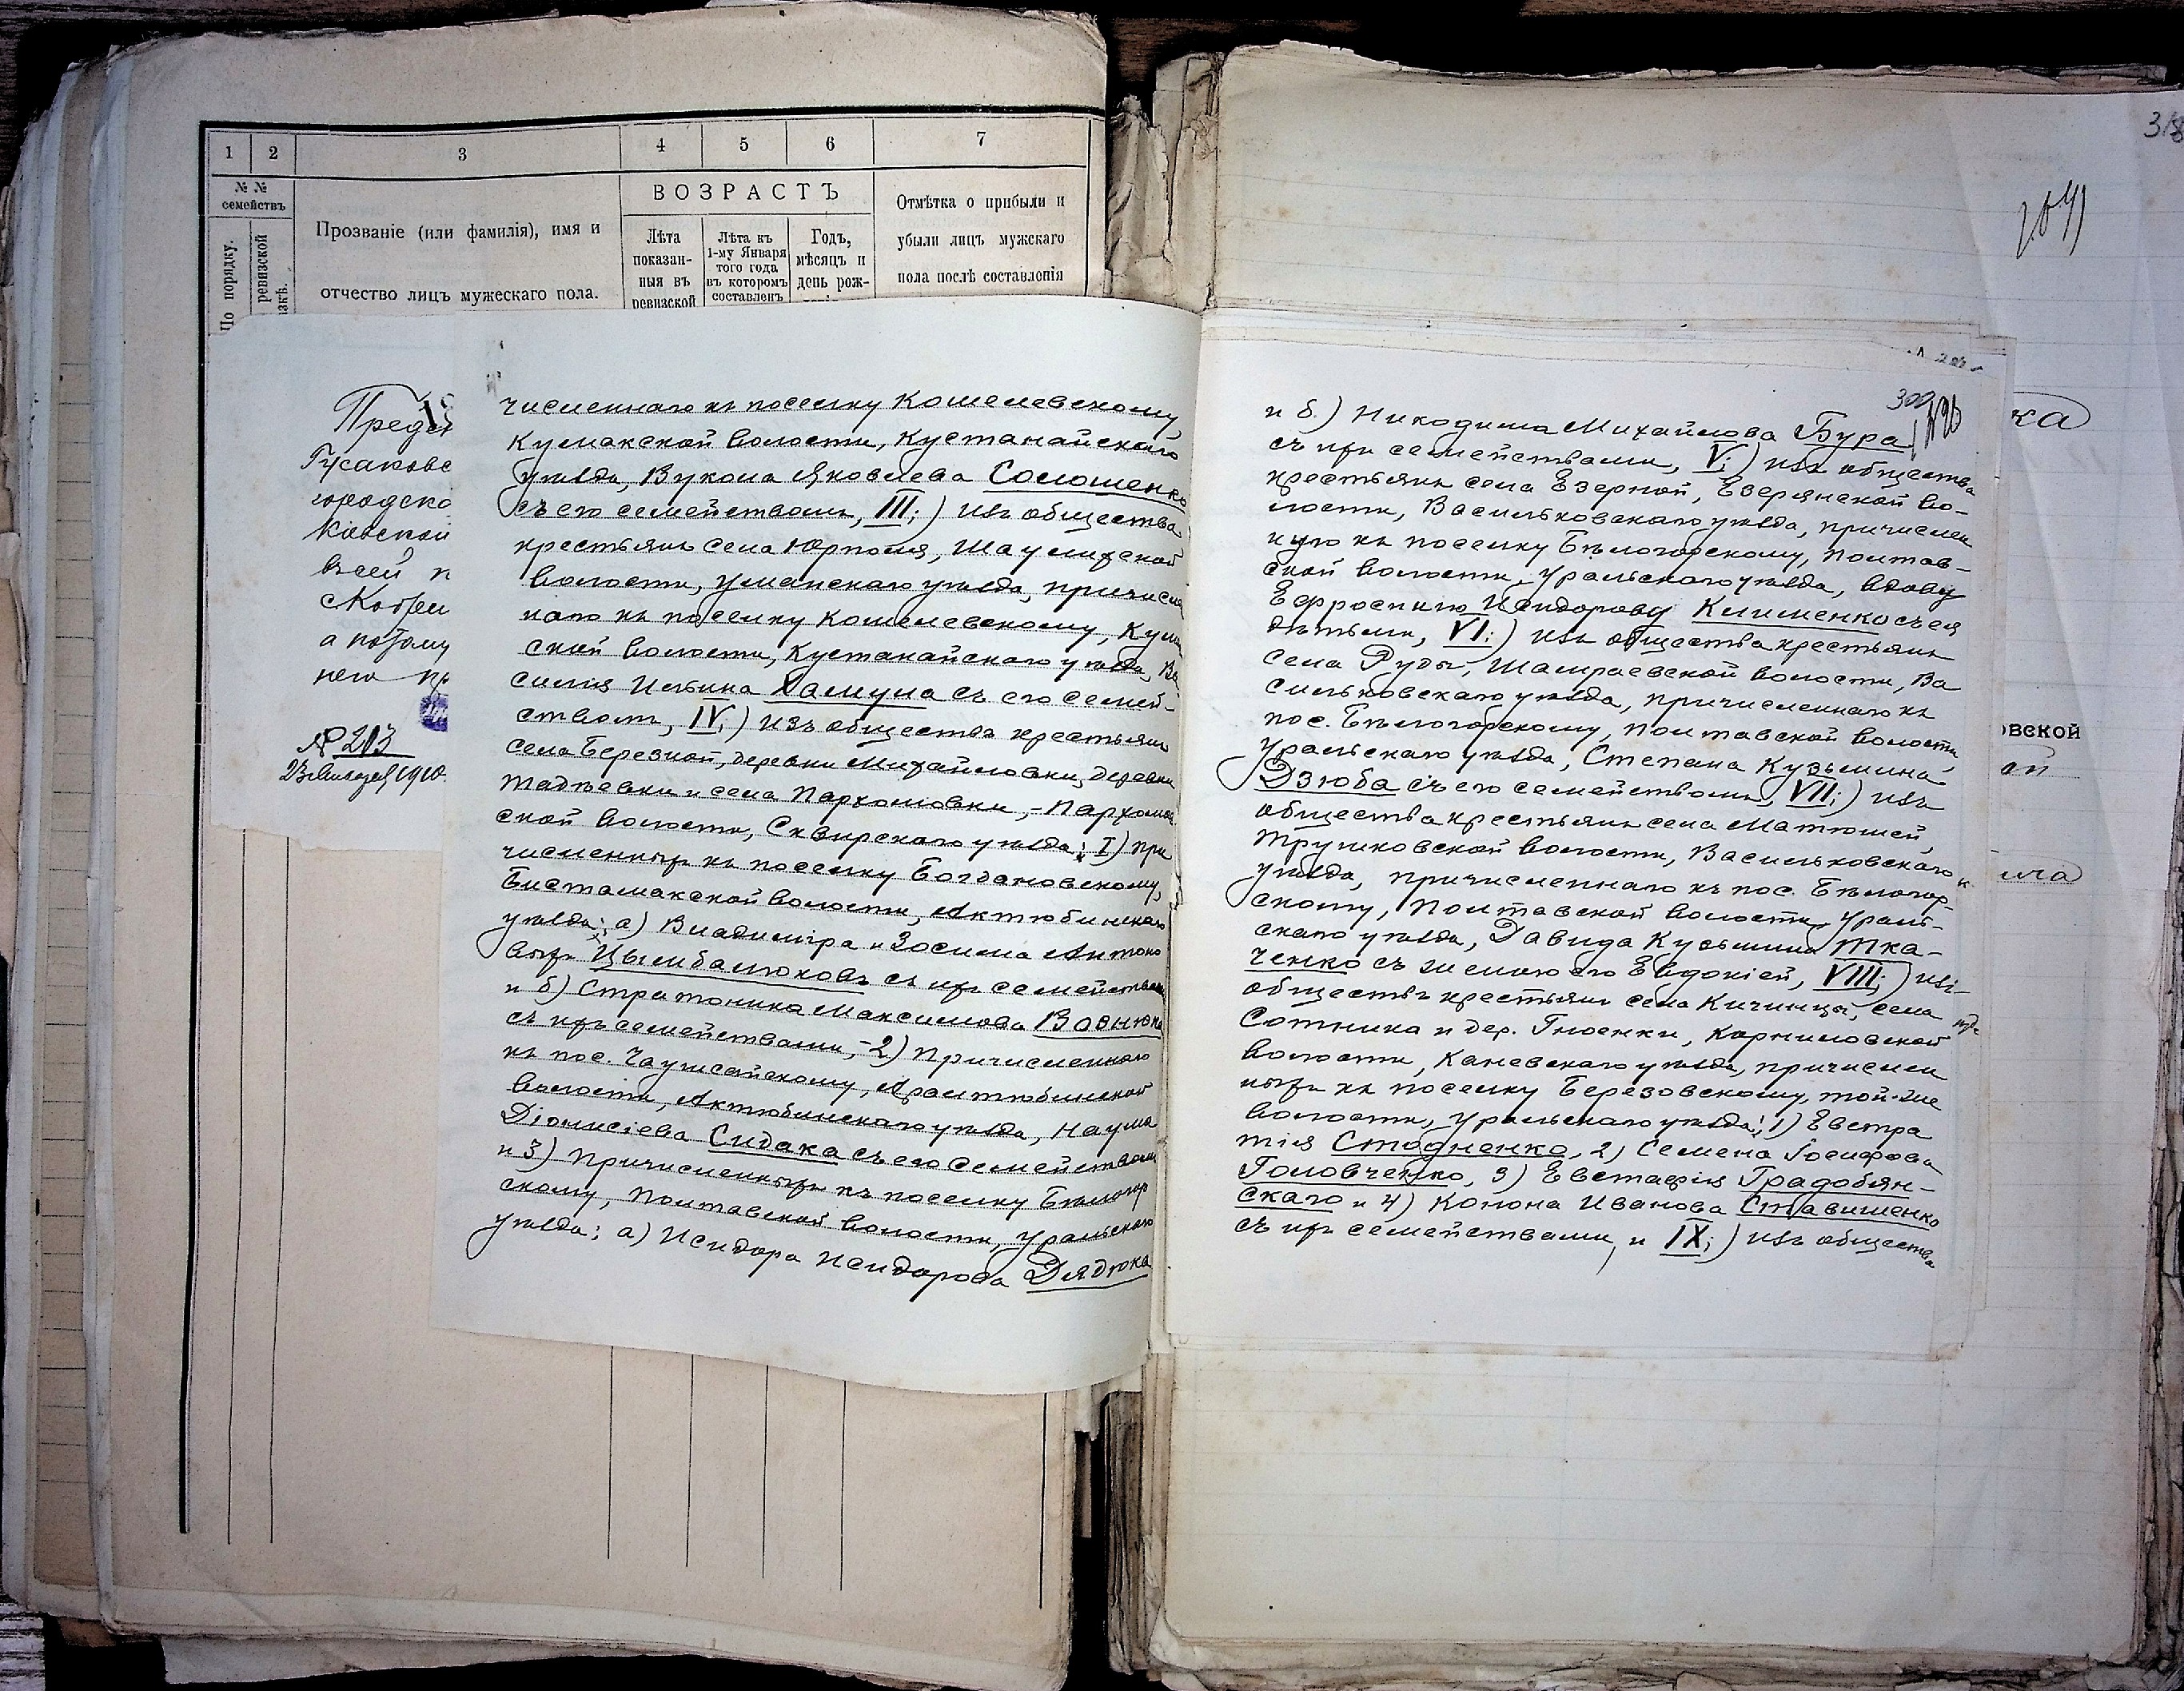 1 2 3 4 5 6 7
№ № семействъ
По порядку.
ревизской
Прозваніе (или фамилія), имя и
отчество лицъ мужескаго пола.
ВОЗРАСТЪ
Лѣта показан-ныя въ ревизской
Лѣта къ 1-му Января того года въ которомъ составленъ
Годъ, мѣсяцъ и день рож-
Отмѣтка о прибыли и
убыли лицъ мужскаго
пола послѣ составленія
Гусаковс
городско
всей
а потому
№ 213
1910.
численнаго къ поселку Кошелевскому,
Кумакской волости, Кустанайскаго
уѣзда, Вукола Яковлева Соломенко
съ его семействомъ, III;) изъ общества
крестьянъ села Юрполя, Шаулихской
волости, Уманскаго уѣзда, причисле
наго къ поселку Кошелевскому, Кума
ской волости, Кустанайскаго уѣзда, Ва
силія Ильина Хамула съ его семей-
ствомъ, IV;) изъ общества крестьянъ
села Березной, деревни Михайловки, деревни
Тадѣевки и села Пархомовки, - Пархомов
ской волости, Сквирскаго уѣзда; I) при
численныхъ къ поселку Богдановскому,
Бистамакской волости, Актюбинскаго
уѣзда; а) Владиміра и Зосима Антоно
выхъ Цымбалюковъ съ ихъ семействами
и б) Стратоника Максимова Вознюка
съ ихъ семействами, - 2) Причисленнаго
къ пос. Чаушсайскому, Аралтюбинской
волости, Актюбинскаго уѣзда, Наума
Діонисіева Сидака съ его семействомъ
и 3) Причисленныхъ къ поселку Бѣлогор
скому, Полтавской волости, Уральскаго
уѣзда; а) Исидора Исидорова Дядюка
318
300
и б.) Никодима Михайлова Бура
съ ихъ семействами, V;) изъ общества
крестьянъ села Езерной, Езерянской во-
лости, Васильковскаго уѣзда, причислен
ную къ поселку Бѣлогорскому, Полтав-
ской волости, Уральскаго уѣзда, вдову
Ефросинію Исидорову Клименко съ ея
дѣтьми, VI;) изъ общества крестьянъ
села Руды, Шамраевской волости, Ва
сильковскаго уѣзда, причисленнаго къ
пос. Бѣлогорскому, Полтавской волости,
Уральскаго уѣзда, Степана Кузьмина
Дзюба съ его семействомъ, VII;) изъ
общества крестьянъ села Матюшей,
Трушковской волости, Васильковскаго
уѣзда, причисленнаго къ пос. Бѣлогор-
скому, Полтавской волости, Ураль-
скаго уѣзда, Давида Кузьмина Тка-
ченко съ женою его Евдокіей, VIII;) изъ
обществъ крестьянъ села Кичинцы, села
Сотника и дер. Гноенки, Корниловской
волости, Каневскаго уѣзда, причислен
ныхъ къ поселку Березовскому, той-же
волости, Уральскаго уѣзда; 1) Евстра
тія Стодненко, 2) Семена Іосифова
Головченко, 3) Евстафія Градобян-
скаго и 4) Конона Иванова Ставишенко
съ ихъ семействами, и IX;) изъ общества
ка
овской